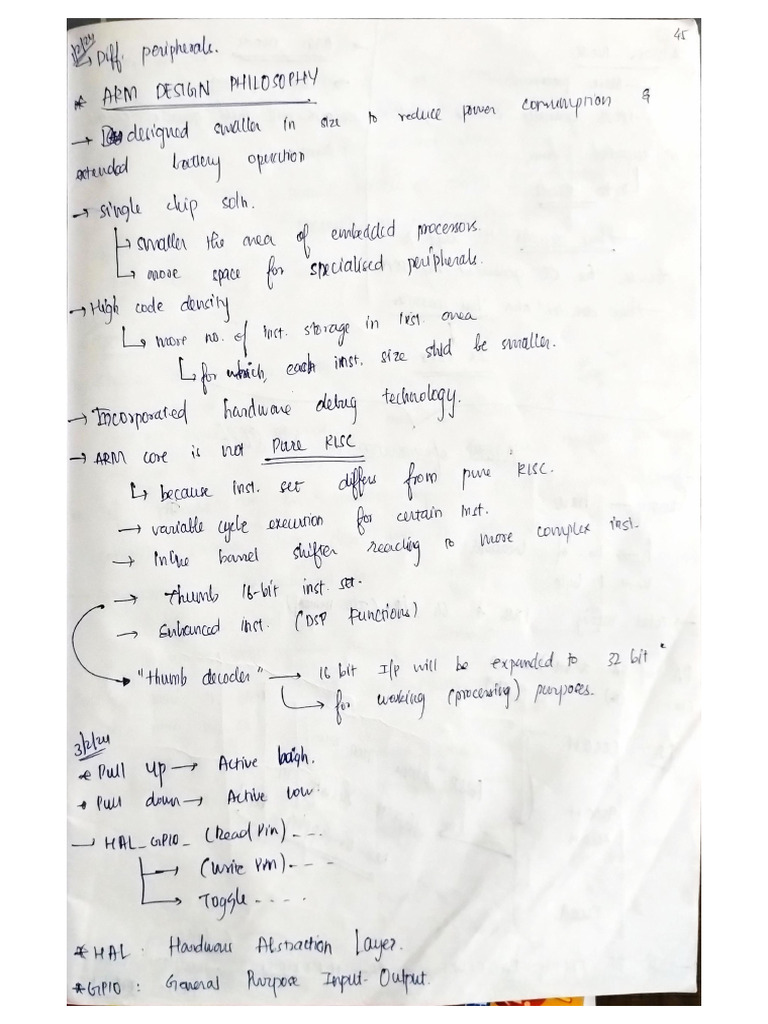 45
1/2/24
→ Diff. peripherals.
* ARM DESIGN PHILOSOPHY
→ designed smaller in size to reduce power consumption &
extended battery operation
→ Single chip soln.
↳ smaller the area of embedded processors.
↳ more space for specialised peripherals.
→ High code density
↳ more no. of inst. storage in inst. area
↳ for which, each inst. size shld be smaller.
→ Incorporated hardware debug technology.
→ ARM core is not Pure RISC
↳ because inst. set differs from pure RISC.
→ variable cycle execution for certain inst.
→ Inline barrel shifter reacting to more complex inst.
→ Thumb 16-bit inst. set.
→ Enhanced inst. (DSP Functions)
"thumb decoder" → 16 bit I/p will be expanded to 32 bit
→ for working (processing) purposes.
3/2/24
* Pull up → Active high.
* Pull down → Active low.
→ HAL_GPIO_ (Read Pin) ----
→ (Write Pin) ----
→ Toggle ----
* HAL : Hardware Abstraction Layer.
* GPIO : General Purpose Input-Output.